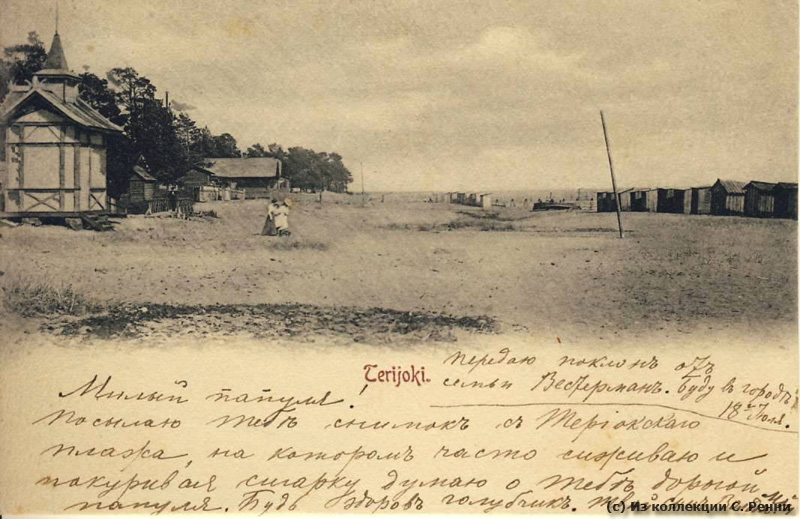 Terijoki.
Передаю поклонъ отъ
семьи Вестерманъ. Буду въ городѣ
18го Іюля.
Милый папуля!
Посылаю тебѣ снимокъ съ Теріокскаго
пляжа, на которомъ часто сиживаю и
покуривая сигарку думаю о тебѣ дорогой
папуля. Будь здоровъ голубчикъ. Твой сынъ
(c) Из коллекции С. Ренни